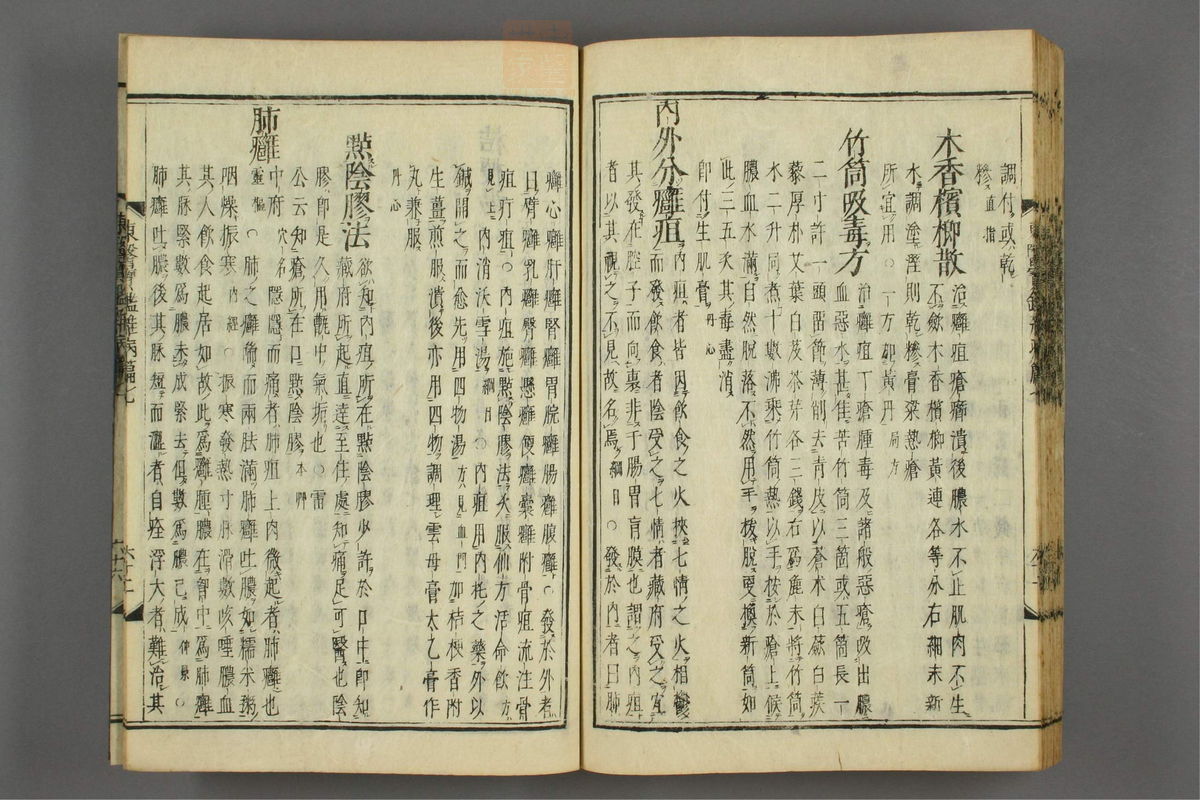 調付或乾
糝直指
木香檳榔散治癰疽瘡癤潰後膿水不止肌肉不生
不斂木香檳榔黃連各等分右細末新
水調塗溼則乾糝膏粱熱瘡
所宜用○一方加黃丹局方
竹筒吸毒方治癰疽丁瘡腫毒及諸般惡瘡吸出膿
血惡水甚佳苦竹筒三箇或五箇長一
二寸許一頭留節薄削去靑皮以蒼朮白蘞白蒺
藜厚朴艾葉白芨茶芽各三錢右爲麁末將竹筒
水二升同煮十數沸乘竹筒熱以手按於瘡上候
膿血水滿自然脫落不然用手拔脫更換新筒如
此三五次其毒盡消
卽付生肌膏丹心
內外分癰疽內疽者皆因飮食之火挾七情之火相鬱
而發飮食者陰受之七情者藏府受之宜
其發在腔子而向裏非干腸胃肓膜也謂之內疽
者以其視之不見故名焉綱目○發於內者曰肺
癰心癰肝癰腎癰胃脘癰腸癰腹癰○發於外者
曰臂癰乳癰臀癰懸癰便癰囊癰附骨疽流注骨
疽疔疽○內疽施點陰膠法次服仙方活命飮方
見上內消沃雪湯綱目○內疽用內托之藥外以
鍼開之而愈先用四物湯方見血門加桔梗香附
生薑煎服潰後亦用四物調理雲母膏太乙膏作
丸兼服
丹心
點陰膠法欲知內疽所在點陰膠少許於口中卽知
藏府所起直達至住處知痛足可醫也陰
膠卽是久用甑中氣垢也○雷
公云知瘡所在口點陰膠本艸
肺癰中府穴名隱隱而痛者肺疽上肉微起者肺癰也
靈樞○肺之癰喘而兩胠滿肺癰吐膿如糯米粥
咽燥振寒內經○振寒發熱寸脉滑數咳唾膿血
其人飮食起居如故此爲癰腫膿在胷中爲肺癰
其脉緊數爲膿未成緊去但數爲膿已成仲景○
肺癰吐膿後其脉短而濇者自痊浮大者難治其
東醫寶鑑雜病篇七